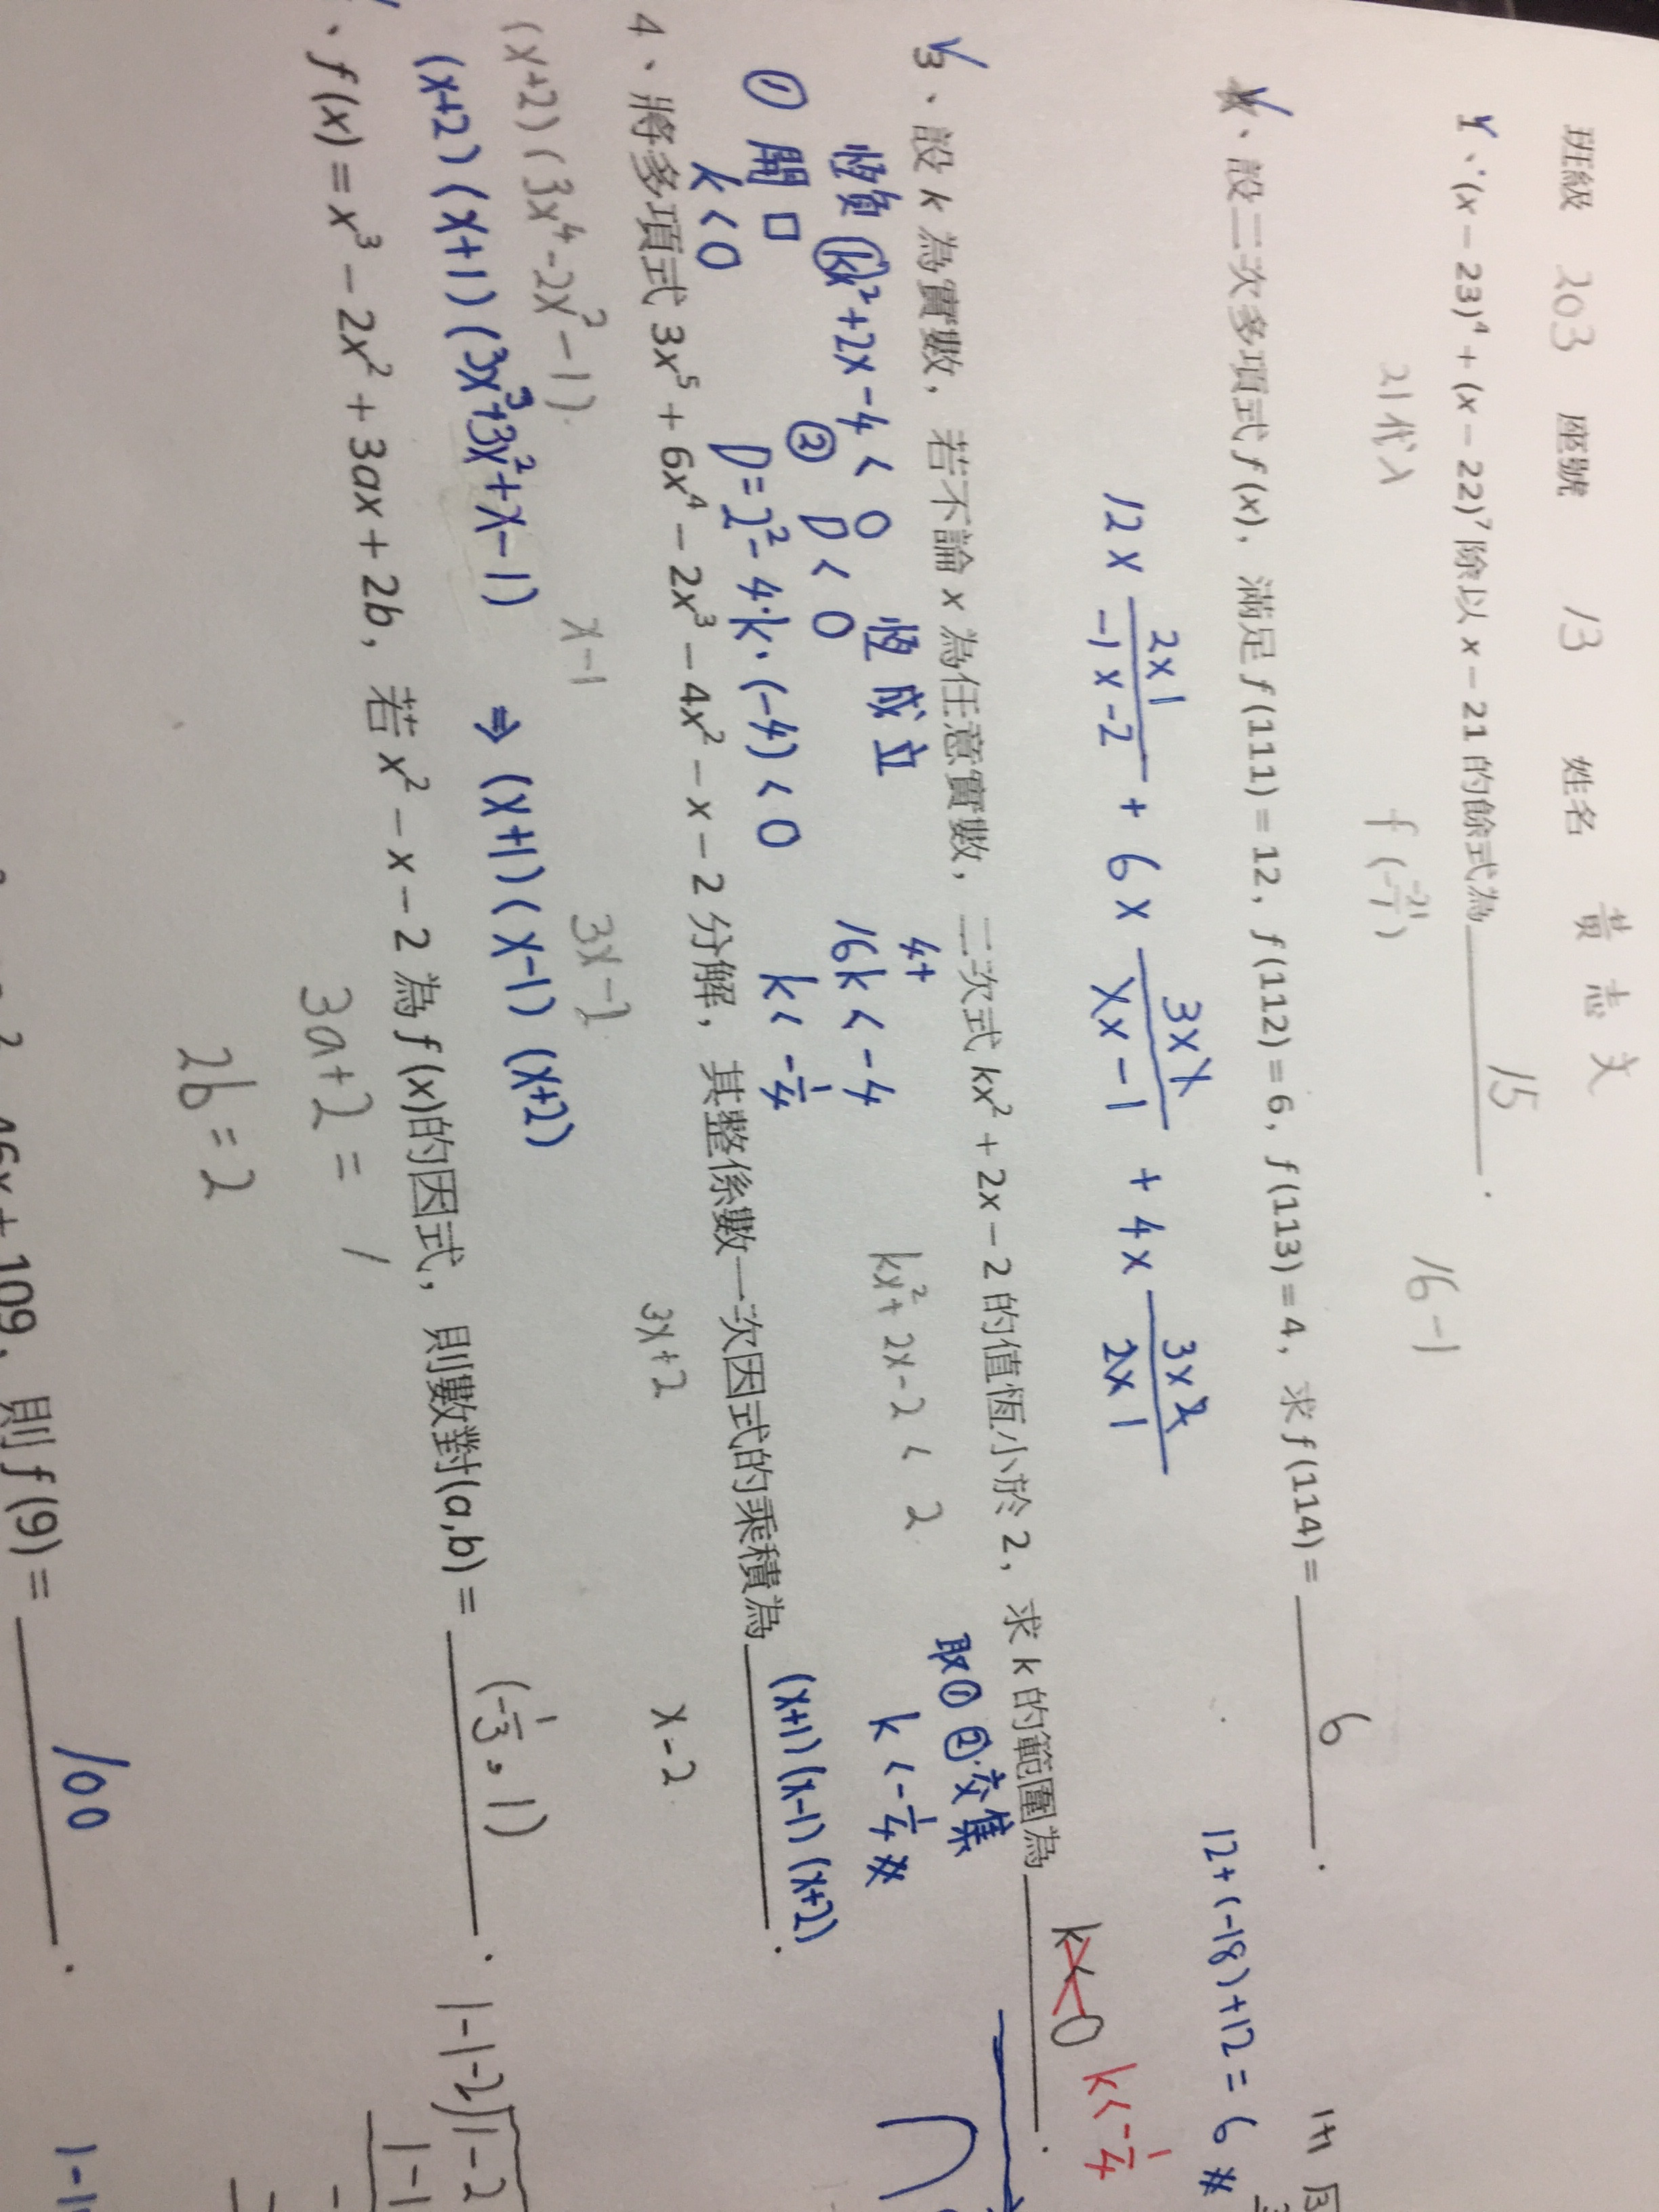 班級 203 座號 13 姓名 黃志文
1、(x－23)⁴＋(x－22)⁷除以x－21的餘式為 15 .
21代入 f(-21/1) 16-1
2、設二次多項式f(x)，滿足f(111)＝12，f(112)＝6，f(113)＝4，求f(114)＝ 6 .
12x (2x1)/(-1x-2) + 6x (3x1)/(1x-1) + 4x (3x2)/(2x1)
12+(-18)+12=6 #
3、設k為實數，若不論x為任意實數，二次式kx²＋2x－2的值恆小於2，求k的範圍為 k<0 k<-1/4 .
恆負 kx²+2x-4<0 恆成立 4+16k<-4 kx²+2x-2<2 取①②交集
① 開口 ② D<0 k<-1/4 k<-1/4 #
k<0 D=2²-4·k·(-4)<0
4、將多項式3x⁵＋6x⁴－2x³－4x²－x－2分解，其整係數一次因式的乘積為 (x+1)(x-1)(x+2) .
(x+2)(3x⁴-2x²-1) x-1 3x-2 3x+2 x-2
(x+2)(x+1)(3x³+3x²+x-1) ⇒ (x+1)(x-1)(x+2)
、f(x)＝x³－2x²＋3ax＋2b，若x²－x－2為f(x)的因式，則數對(a,b)＝ (-1/3，1) .
3a+2=1
2b=2
1-1-2 1-2
1-1
46x+109，則f(9)＝ 100 .